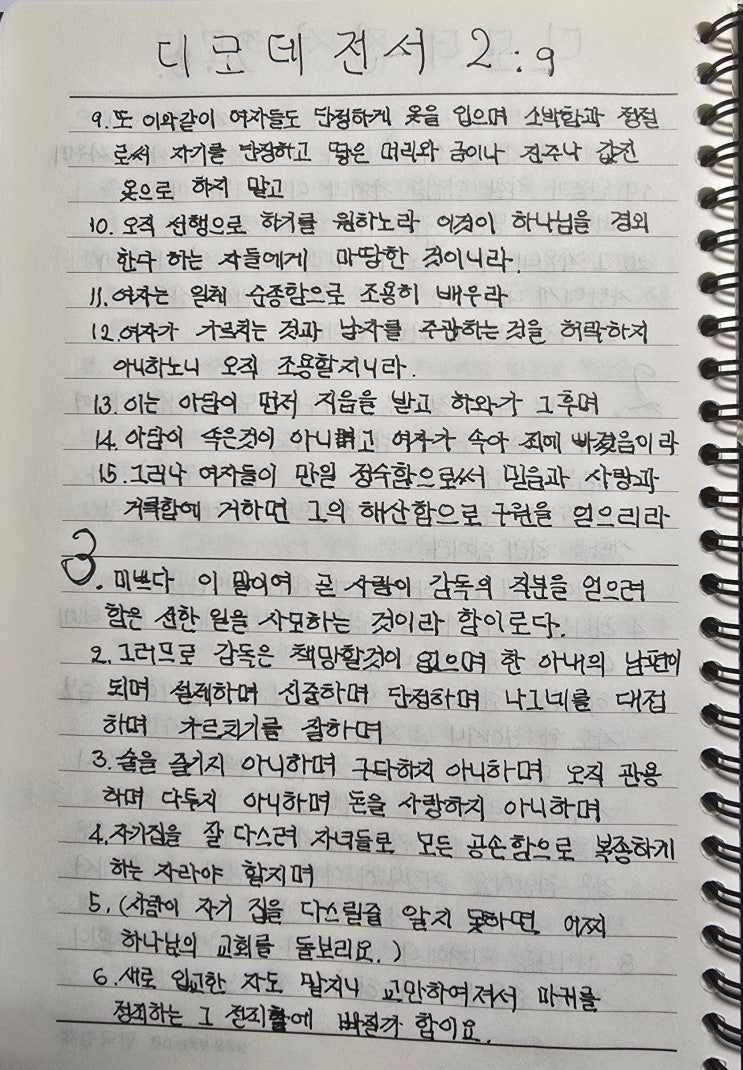 디모데전서 2:9
9. 또 이와같이 여자들도 단정하게 옷을 입으며 소박함과 정절
로써 자기를 단장하고 땋은 머리와 금이나 진주나 값진
옷으로 하지 말고
10. 오직 선행으로 하기를 원하노라 이것이 하나님을 경외
한다 하는 자들에게 마땅한 것이니라.
11. 여자는 일체 순종함으로 조용히 배우라
12. 여자가 가르치는 것과 남자를 주관하는 것을 허락하지
아니하노니 오직 조용할지니라.
13. 이는 아담이 먼저 지음을 받고 하와가 그후며
14. 아담이 속은것이 아니고 여자가 속아 죄에 빠졌음이라
15. 그러나 여자들이 만일 정숙함으로써 믿음과 사랑과
거룩함에 거하면 그의 해산함으로 구원을 얻으리라
3. 미쁘다 이 말이여 곧 사람이 감독의 직분을 얻으려
함은 선한 일을 사모하는 것이라 함이로다.
2. 그러므로 감독은 책망할것이 없으며 한 아내의 남편이
되며 절제하며 신중하며 단정하며 나그네를 대접
하며 가르치기를 잘하며
3. 술을 즐기지 아니하며 구타하지 아니하며 오직 관용
하며 다투지 아니하며 돈을 사랑하지 아니하며
4. 자기집을 잘 다스려 자녀들로 모든 공손함으로 복종하게
하는 자라야 할지며
5. (사람이 자기 집을 다스릴줄 알지 못하면 어찌
하나님의 교회를 돌보리요.)
6. 새로 입교한 자도 말지니 교만하여져서 마귀를
정죄하는 그 정죄에 빠질까 함이요.